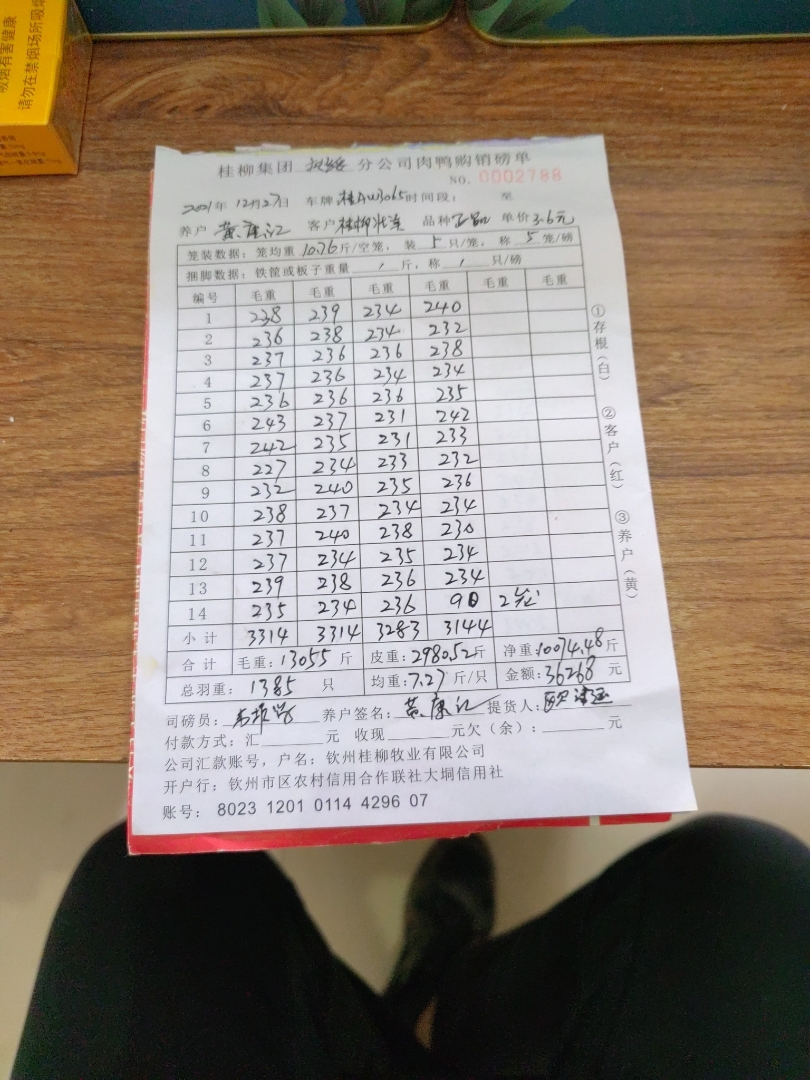 吸烟有害健康
请勿在禁烟场所吸烟
桂柳集团 分公司肉鸭购销磅单
NO. 0002788
2021年 12月27日 车牌:桂AW3065时间段: 至
养户 黄康江 客户 桂柳壮壮 品种 正品 单价3.6元
笼装数据: 笼均重 10.76 斤/空笼, 装 5 只/笼, 称 5 笼/磅
捆脚数据: 铁筐或板子重量 / 斤, 称 / 只/磅
编号 毛重 毛重 毛重 毛重 毛重 毛重
1 238 239 234 240
2 236 238 234 232
3 237 236 236 238
4 237 236 234 234
5 236 236 236 235
6 243 237 231 242
7 242 235 231 233
8 227 234 233 232
9 232 240 235 236
10 238 237 234 234
11 237 240 238 230
12 237 234 235 234
13 239 238 236 234
14 235 234 236 90 2笼
小计 3314 3314 3283 3144
合计 毛重: 13055 斤 皮重: 2980.52斤 净重: 10074.48斤
总羽重: 1385 只 均重: 7.27 斤/只 金额: 36268 元
司磅员: 养户签名: 黄康江 提货人:
付款方式: 汇 元 收现 元欠(余): 元
公司汇款账号, 户名: 钦州桂柳牧业有限公司
开户行: 钦州市区农村信用合作联社大垌信用社
账号: 8023 1201 0114 4296 07
①存根(白)
②客户(红)
③养户(黄)